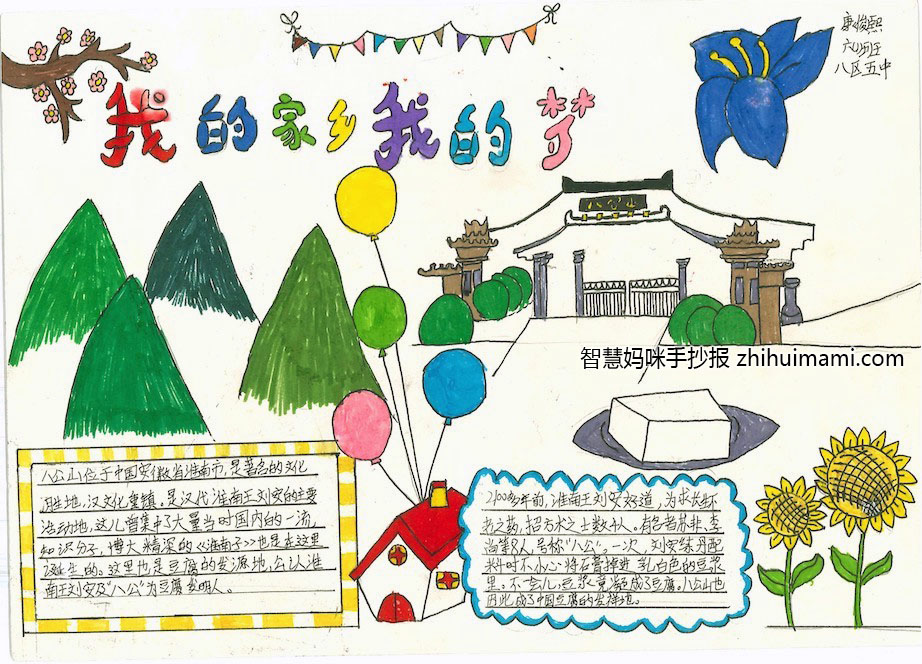 康俊熙
六(1)班
八区五中
我的家乡我的梦
八公山
智慧妈咪手抄报 zhihuimami.com
八公山位于中国安徽省淮南市,是著名的文化
胜地,汉文化重镇。是汉代淮南王刘安的主要
活动地,这儿曾集中了大量当时国内的一流
知识分子,博大精深的《淮南子》也是在这里
诞生的。这里也是豆腐的发源地,公认淮
南王刘安及"八公"为豆腐发明人。
2100多年前,淮南王刘安好道,为求长生不
老之药,招方术之士数千人。有名者苏非、李
尚等8人,号称"八公"。一次,刘安炼丹配
料时不小心将石膏掉进乳白色的豆浆
里。不一会儿豆浆凝成了豆腐。八公山也
因此成了中国豆腐的发祥地。